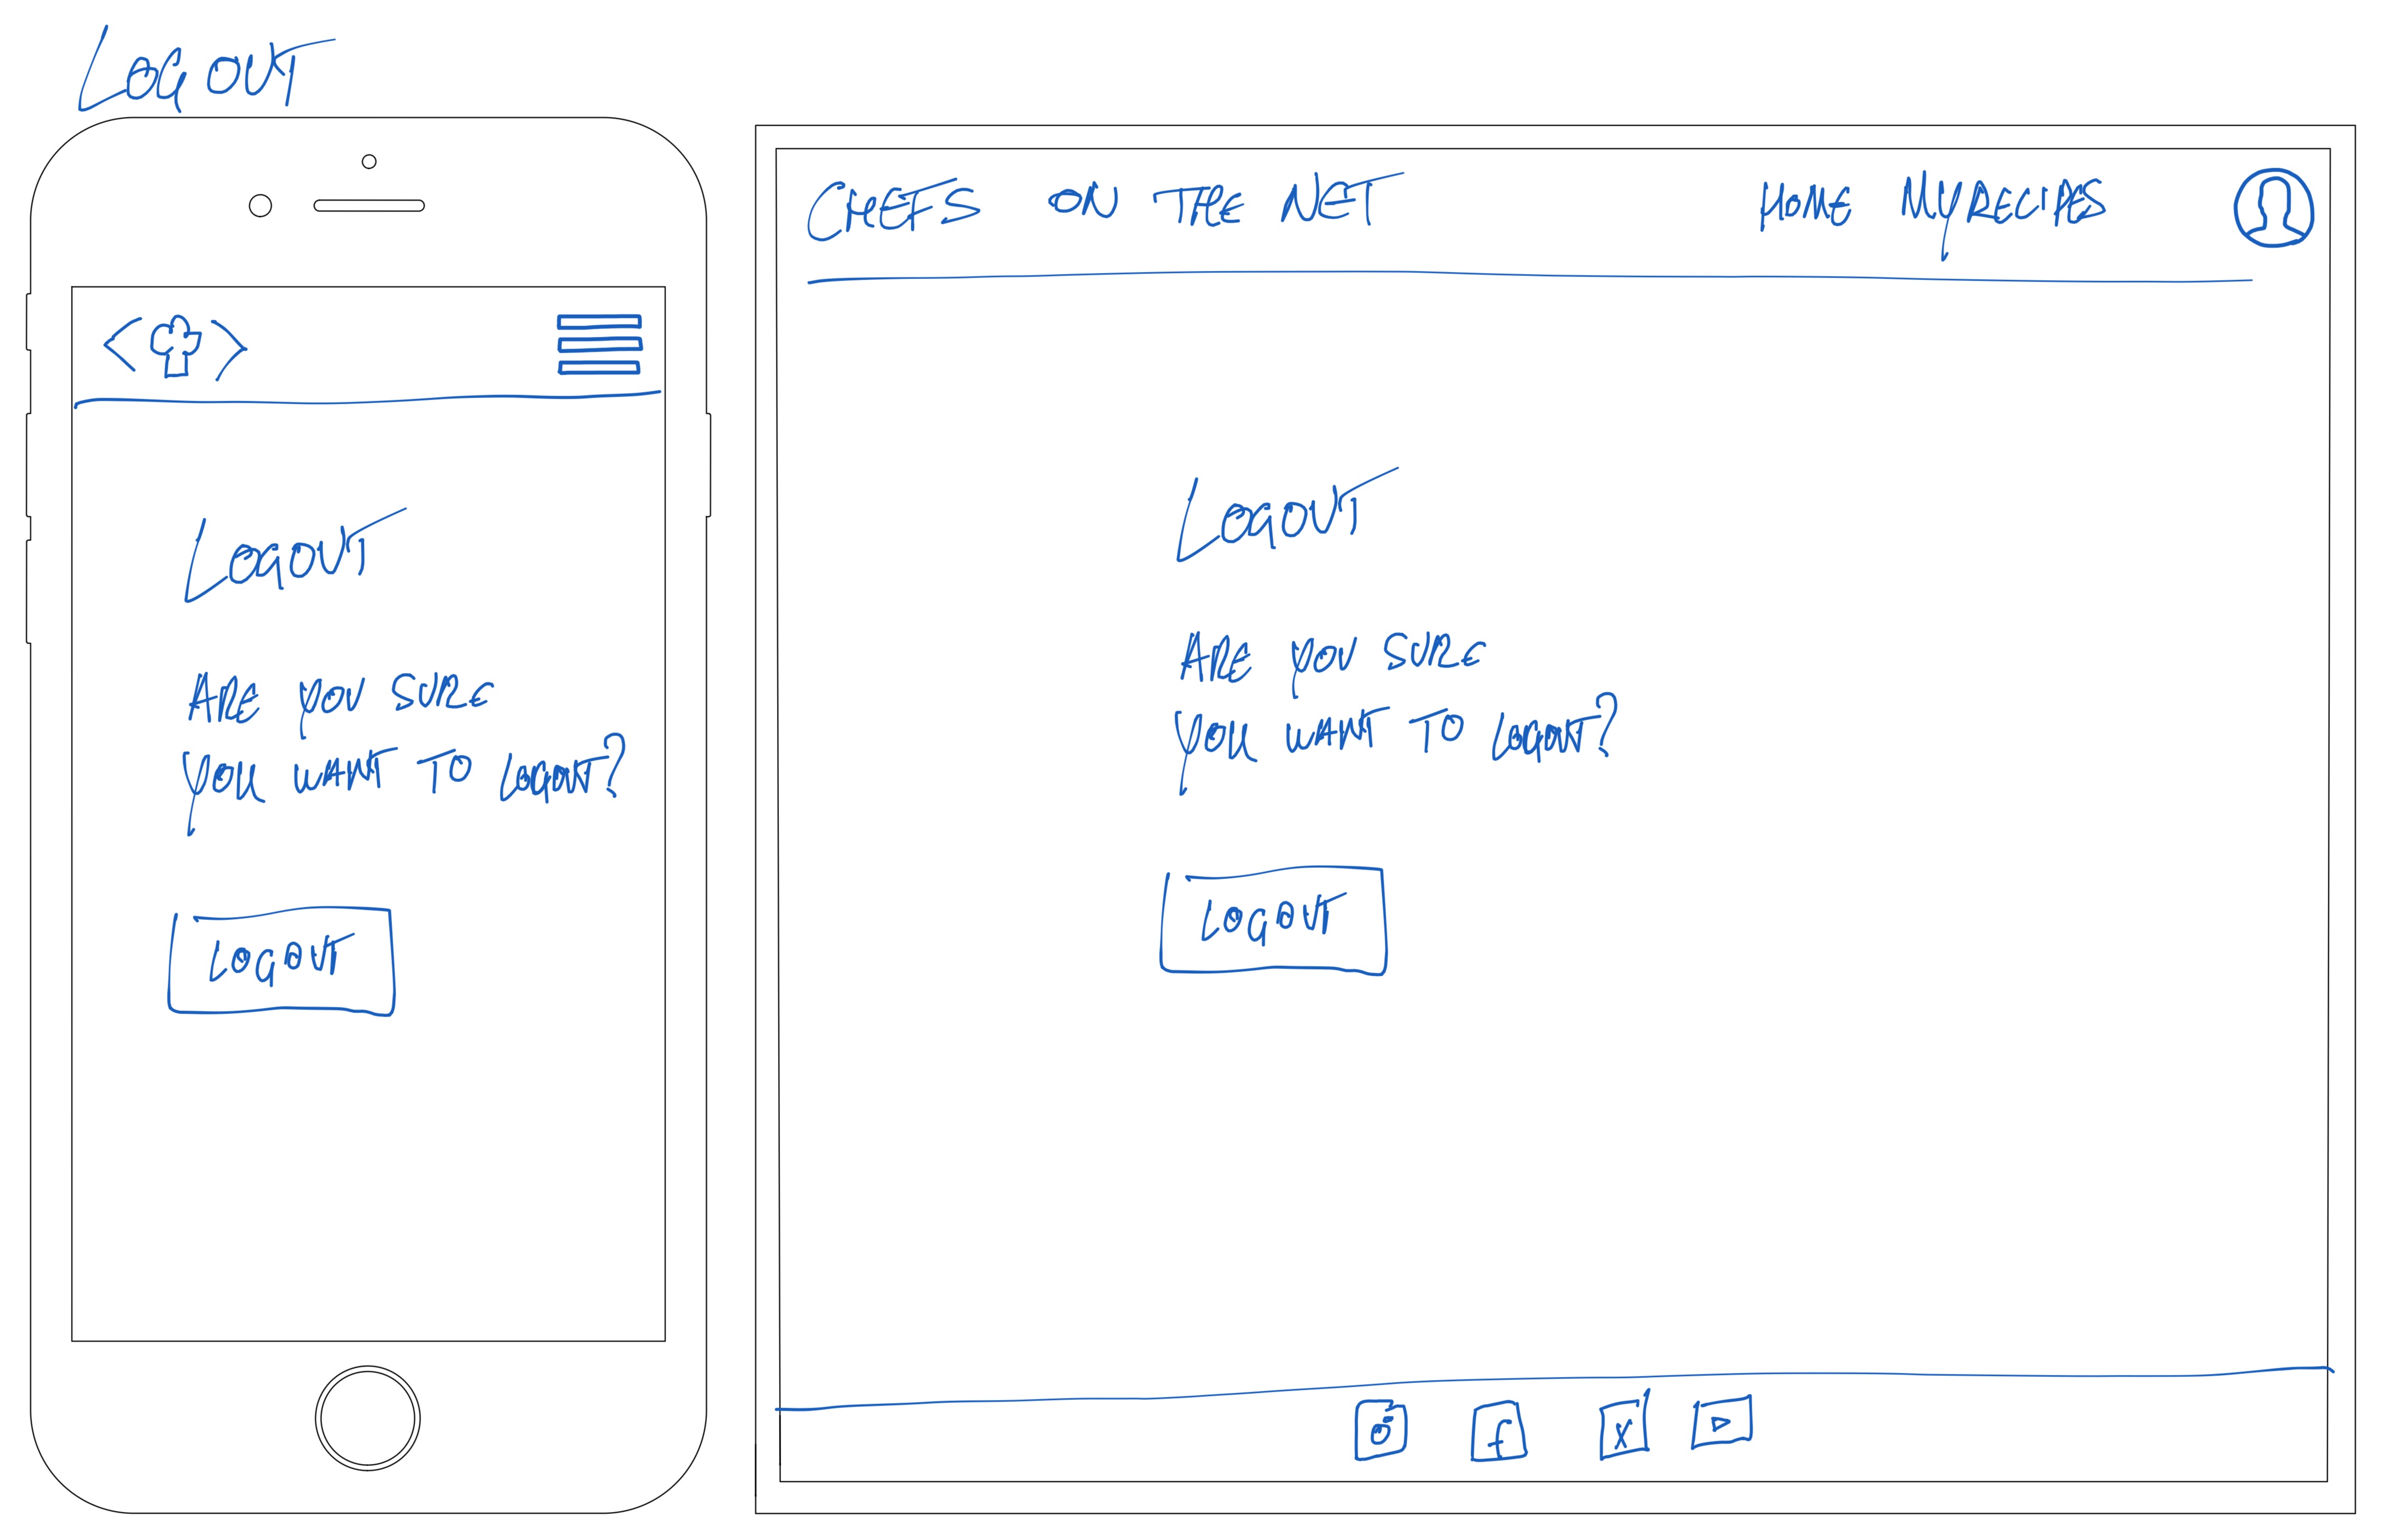 LOGOUT
LOGOUT
ARE YOU SURE
YOU WANT TO LOGOUT?
LOGOUT
CHEFS ON THE NET
HOME MY RECIPES
LOGOUT
ARE YOU SURE
YOU WANT TO LOGOUT?
LOGOUT
f X